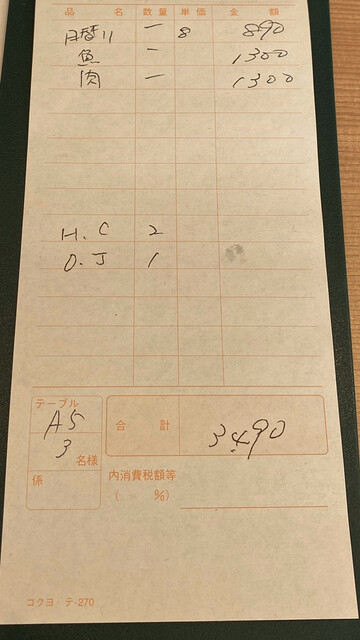 品名 数量 単価 金額
日替り 一 8 890
魚 一 1300
肉 一 1300
H.C 2
O.J 1
テーブル
A5
3名様
係
合計 3,490
内消費税額等
( %)
コクヨ テ-270